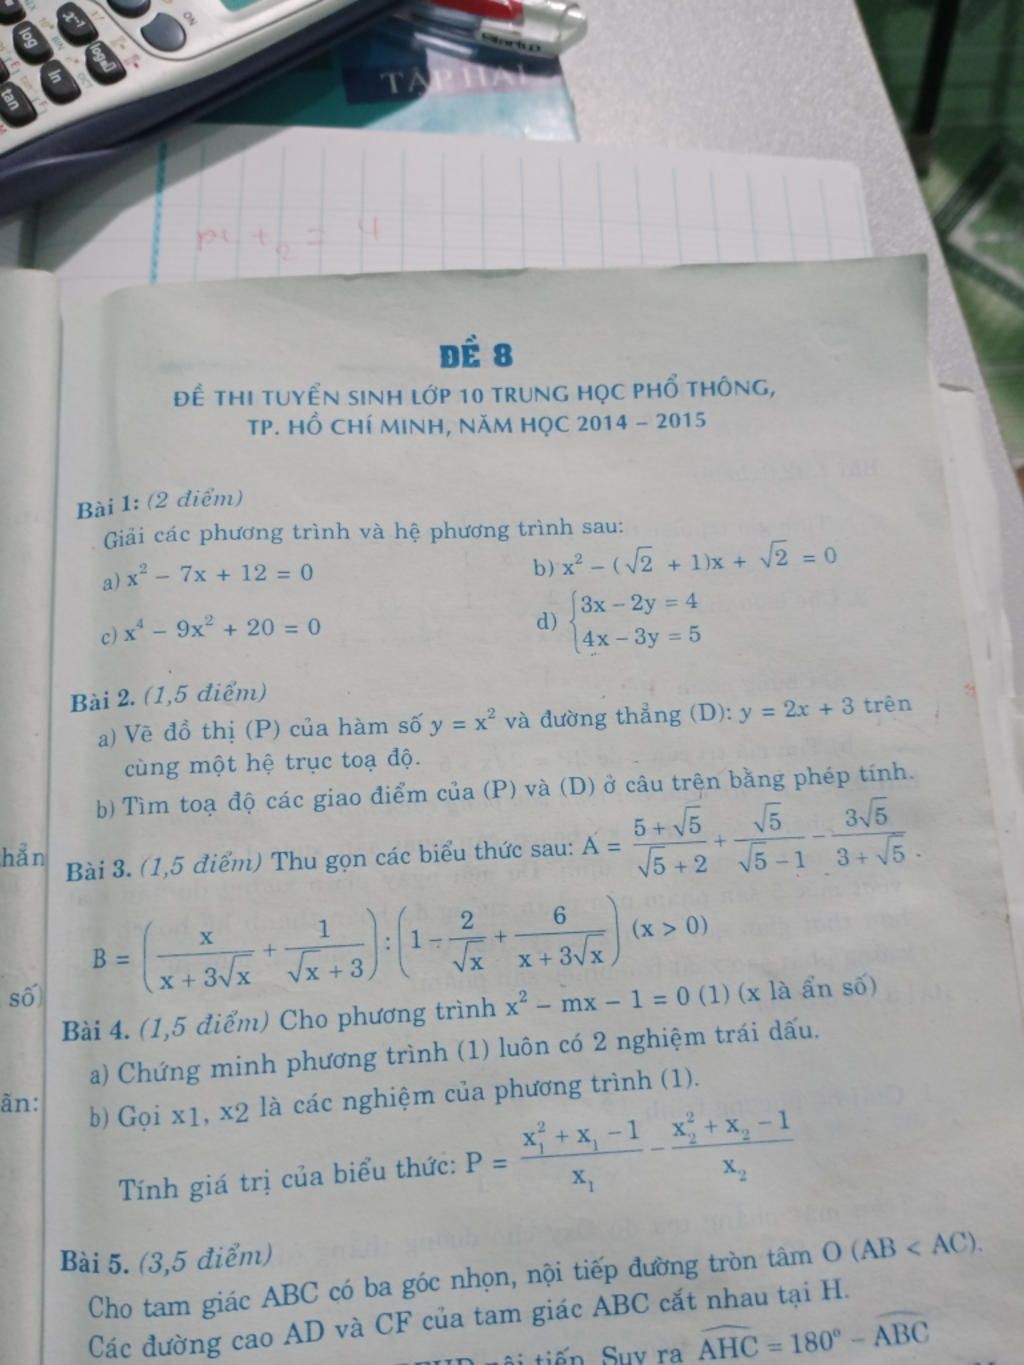 ON
x⁻¹
log
log
ln
tan
TẬP HAI
ĐỀ 8
ĐỀ THI TUYỂN SINH LỚP 10 TRUNG HỌC PHỔ THÔNG,
TP. HỒ CHÍ MINH, NĂM HỌC 2014 – 2015
Bài 1: (2 điểm)
Giải các phương trình và hệ phương trình sau:
a) x² – 7x + 12 = 0 b) x² – (√2 + 1)x + √2 = 0
c) x⁴ – 9x² + 20 = 0 d) {3x – 2y = 4
4x – 3y = 5
Bài 2. (1,5 điểm)
a) Vẽ đồ thị (P) của hàm số y = x² và đường thẳng (D): y = 2x + 3 trên
cùng một hệ trục toạ độ.
b) Tìm toạ độ các giao điểm của (P) và (D) ở câu trên bằng phép tính.
Bài 3. (1,5 điểm) Thu gọn các biểu thức sau: A = (5 + √5)/(√5 + 2) + √5/(√5 – 1) – 3√5/(3 + √5).
B = (x/(x + 3√x) + 1/(√x + 3)) : (1 – 2/√x + 6/(x + 3√x)) (x > 0)
Bài 4. (1,5 điểm) Cho phương trình x² – mx – 1 = 0 (1) (x là ẩn số)
a) Chứng minh phương trình (1) luôn có 2 nghiệm trái dấu.
b) Gọi x1, x2 là các nghiệm của phương trình (1).
Tính giá trị của biểu thức: P = (x₁² + x₁ – 1)/x₁ – (x₂² + x₂ – 1)/x₂
Bài 5. (3,5 điểm)
Cho tam giác ABC có ba góc nhọn, nội tiếp đường tròn tâm O (AB < AC).
Các đường cao AD và CF của tam giác ABC cắt nhau tại H.
nội tiếp. Suy ra AHC = 180° – ABC
số)